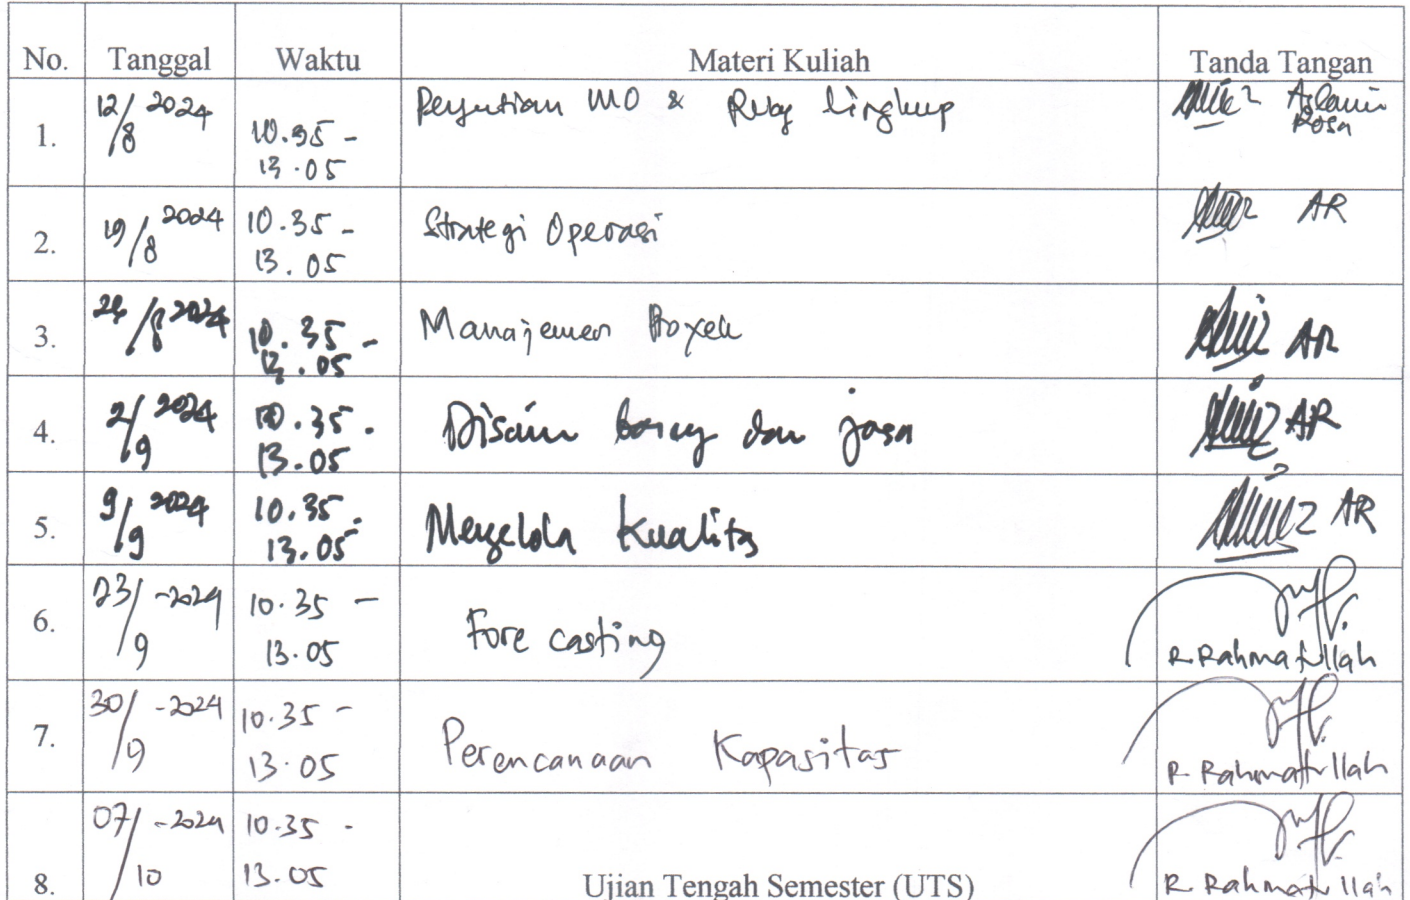 No. Tanggal Waktu Materi Kuliah Tanda Tangan
1. 12/8 2024 10.35 - 13.05 Pengertian MO & Ruang lingkup Aslamia Rosa
2. 19/8 2024 10.35 - 13.05 Strategi Operasi AR
3. /8 2024 10.35 - 13.05 Manajemen Proyek AR
4. 2/9 2024 10.35 - 13.05 Disain barang dan jasa AR
5. 9/9 2024 10.35 - 13.05 Mengelola Kualitas AR
6. 23/9 -2024 10.35 - 13.05 Fore casting R. Rahmatullah
7. 30/9 -2024 10.35 - 13.05 Perencanaan Kapasitas R. Rahmatullah
8. 07/10 -2024 10.35 - 13.05 Ujian Tengah Semester (UTS) R. Rahmatullah